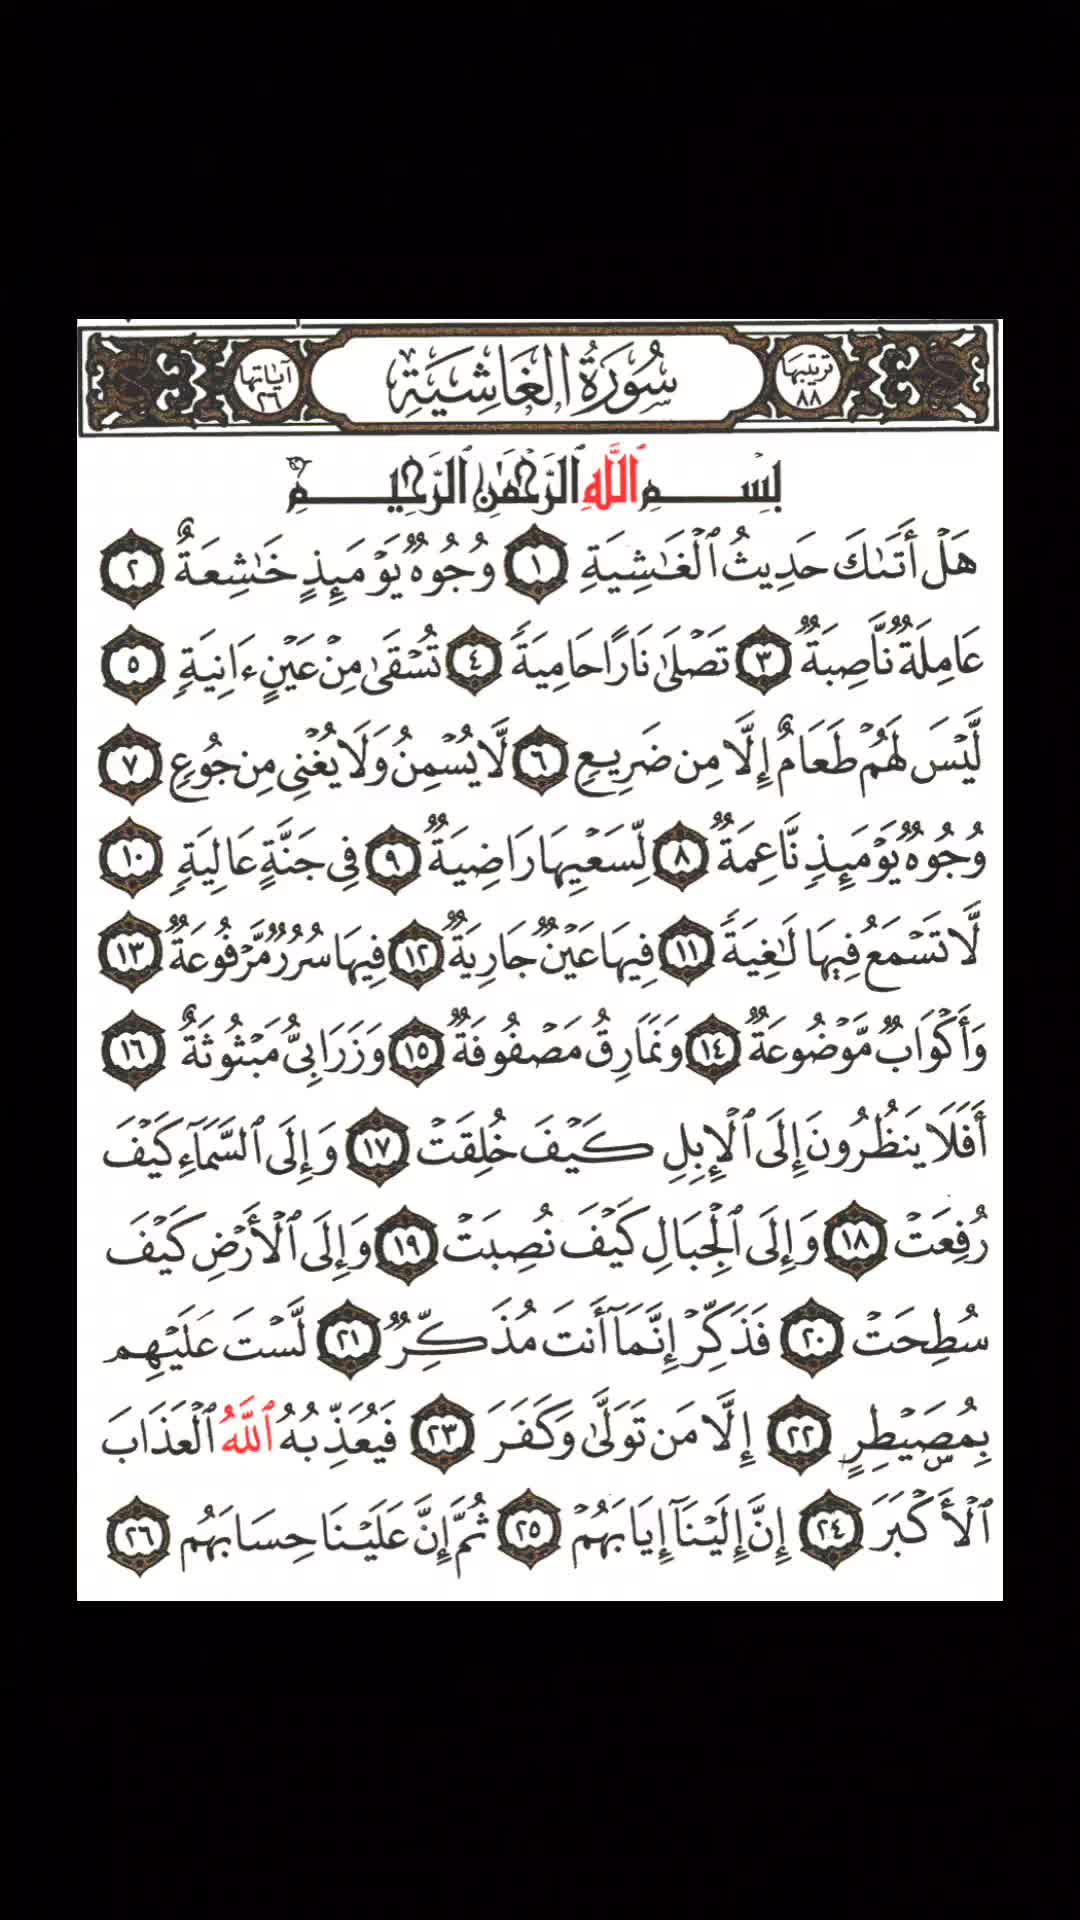 ترتيبها ٨٨ سُورَةُ الغَاشِيَة آياتها ٢٦
بِسْمِ ٱللَّهِ ٱلرَّحْمَٰنِ ٱلرَّحِيمِ
هَلْ أَتَىٰكَ حَدِيثُ ٱلْغَٰشِيَةِ ١ وُجُوهٌ يَوْمَئِذٍ خَٰشِعَةٌ ٢
عَامِلَةٌ نَّاصِبَةٌ ٣ تَصْلَىٰ نَارًا حَامِيَةً ٤ تُسْقَىٰ مِنْ عَيْنٍ ءَانِيَةٍ ٥
لَّيْسَ لَهُمْ طَعَامٌ إِلَّا مِن ضَرِيعٍ ٦ لَّا يُسْمِنُ وَلَا يُغْنِى مِن جُوعٍ ٧
وُجُوهٌ يَوْمَئِذٍ نَّاعِمَةٌ ٨ لِّسَعْيِهَا رَاضِيَةٌ ٩ فِى جَنَّةٍ عَالِيَةٍ ١٠
لَّا تَسْمَعُ فِيهَا لَٰغِيَةً ١١ فِيهَا عَيْنٌ جَارِيَةٌ ١٢ فِيهَا سُرُرٌ مَّرْفُوعَةٌ ١٣
وَأَكْوَابٌ مَّوْضُوعَةٌ ١٤ وَنَمَارِقُ مَصْفُوفَةٌ ١٥ وَزَرَابِىُّ مَبْثُوثَةٌ ١٦
أَفَلَا يَنظُرُونَ إِلَى ٱلْإِبِلِ كَيْفَ خُلِقَتْ ١٧ وَإِلَى ٱلسَّمَآءِ كَيْفَ
رُفِعَتْ ١٨ وَإِلَى ٱلْجِبَالِ كَيْفَ نُصِبَتْ ١٩ وَإِلَى ٱلْأَرْضِ كَيْفَ
سُطِحَتْ ٢٠ فَذَكِّرْ إِنَّمَآ أَنتَ مُذَكِّرٌ ٢١ لَّسْتَ عَلَيْهِم
بِمُصَيْطِرٍ ٢٢ إِلَّا مَن تَوَلَّىٰ وَكَفَرَ ٢٣ فَيُعَذِّبُهُ ٱللَّهُ ٱلْعَذَابَ
ٱلْأَكْبَرَ ٢٤ إِنَّ إِلَيْنَآ إِيَابَهُمْ ٢٥ ثُمَّ إِنَّ عَلَيْنَا حِسَابَهُم ٢٦